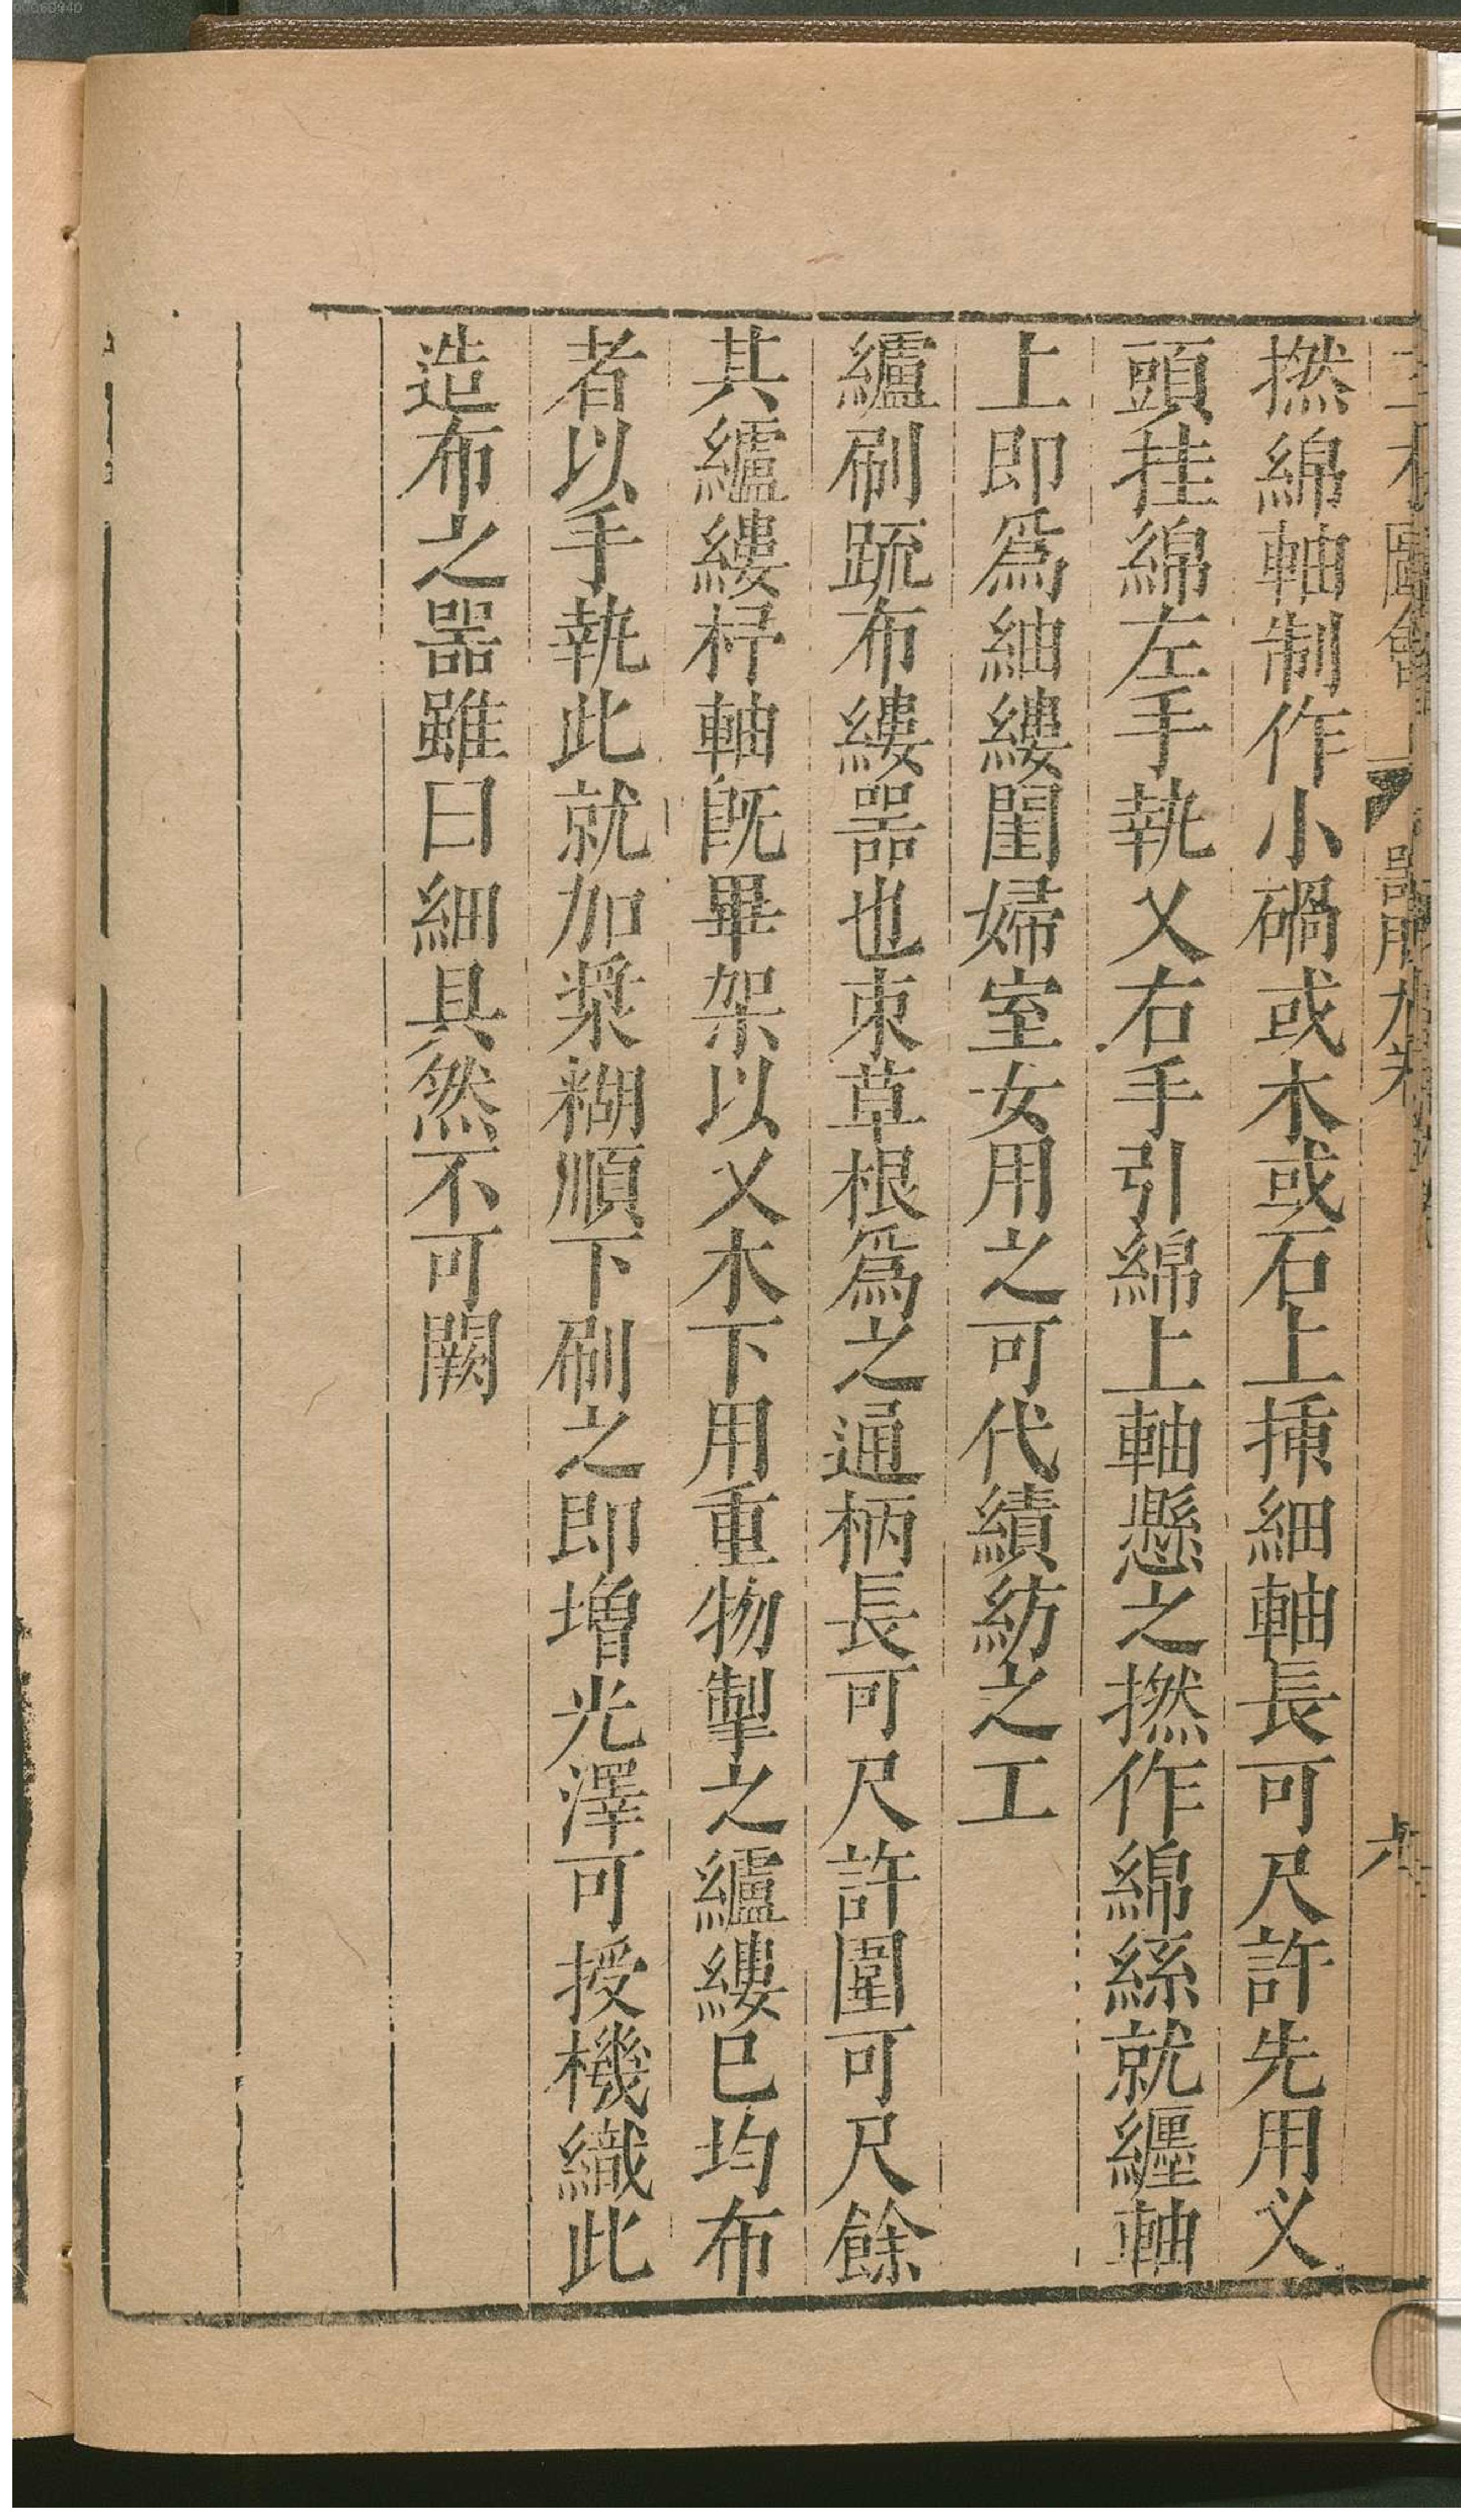 撚綿軸制作小碢或木或石上揷細軸長可尺許先用乂
頭挂綿左手執乂右手引綿上軸懸之撚作綿絲就纒軸
上即爲紬縷閨婦室女用之可代績紡之工
纑刷䟽布縷噐也束草根爲之通柄長可尺許圍可尺餘
其纑縷杼軸旣畢架以乂木下用重物掣之纑縷已均布
者以手執此就加漿糊順下刷之即增光澤可授機織此
造布之噐雖曰細具然不可闕